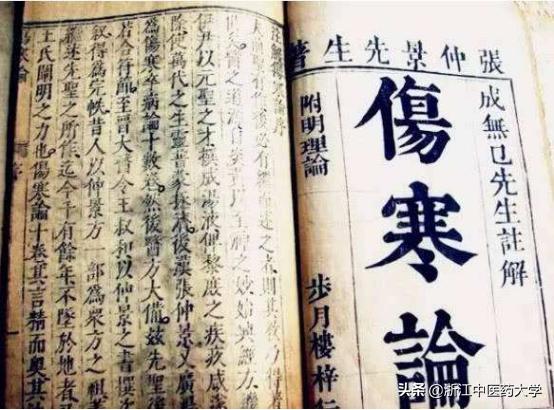 張仲景先生著
成無已先生註解
傷寒論
附明理論
步月樓梓行
註解傷寒論序
聖有作後必有繼述之者則其教乃得
醫之道源自炎黃以至神之妙始興經方
伊尹以元聖之才撰成湯液俾黎庶之疾疚咸
除使萬代之生靈普蒙拯濟後漢張仲景又廣湯
為傷寒卒病論十數卷然後醫方大備茲先聖後
若合符節至晉太醫令王叔和以仲景之書撰
敘得為完帙昔人以仲景方一部為眾方之祖
述先聖之所作迄今千有餘年不墜於地者
王氏闡明之力也傷寒論十卷其言精而奧其
序
头条 @浙江中医药大学